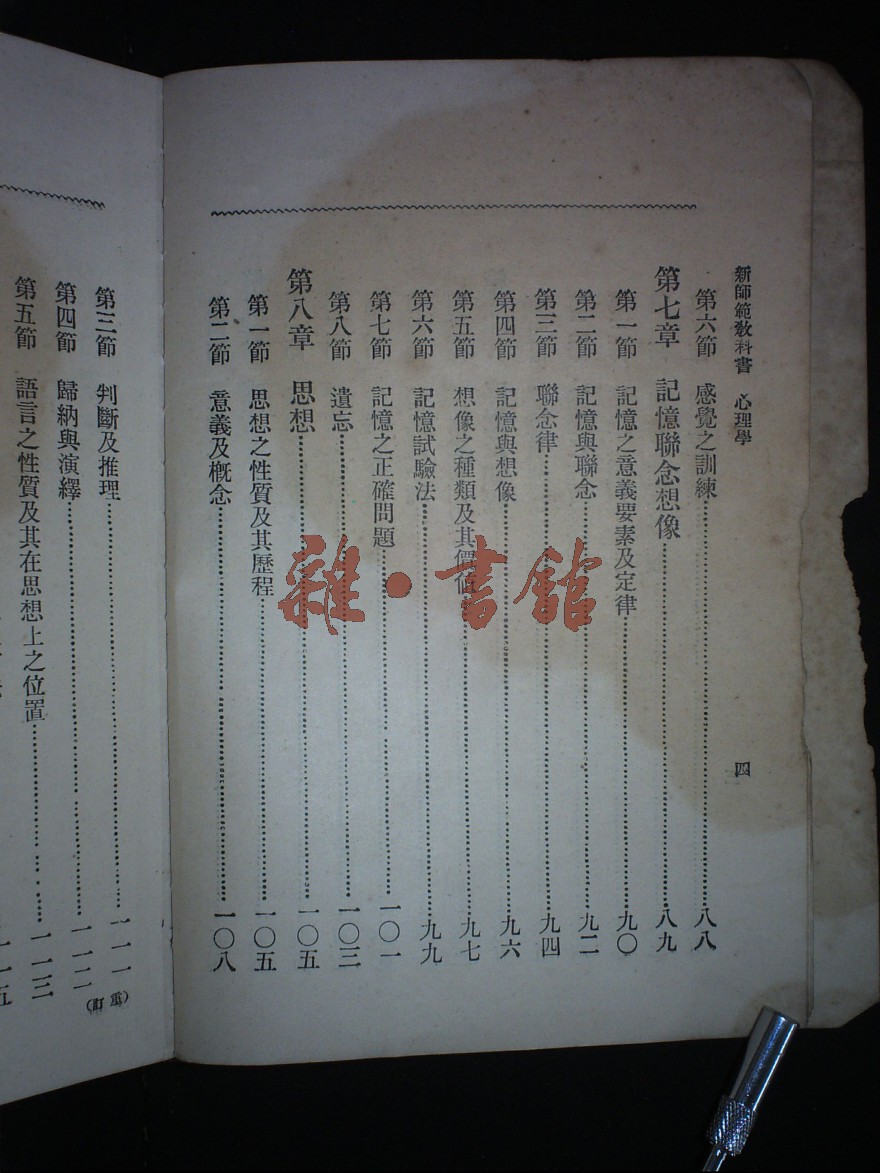 新師範教科書 心理學 四
第六節 感覺之訓練 八八
第七章 記憶聯念想像 八九
第一節 記憶之意義要素及定律 九〇
第二節 記憶與聯念 九二
第三節 聯念律 九四
第四節 記憶與想像 九六
第五節 想像之種類及其價值 九七
第六節 記憶試驗法 九九
第七節 記憶之正確問題 一〇一
第八節 遺忘 一〇三
第八章 思想 一〇五
第一節 思想之性質及其歷程 一〇五
第二節 意義及概念 一〇八
第三節 判斷及推理 一一一
第四節 歸納與演繹 一一二
第五節 語言之性質及其在思想上之位置 一一三
一一五
(重訂)
雜·書館